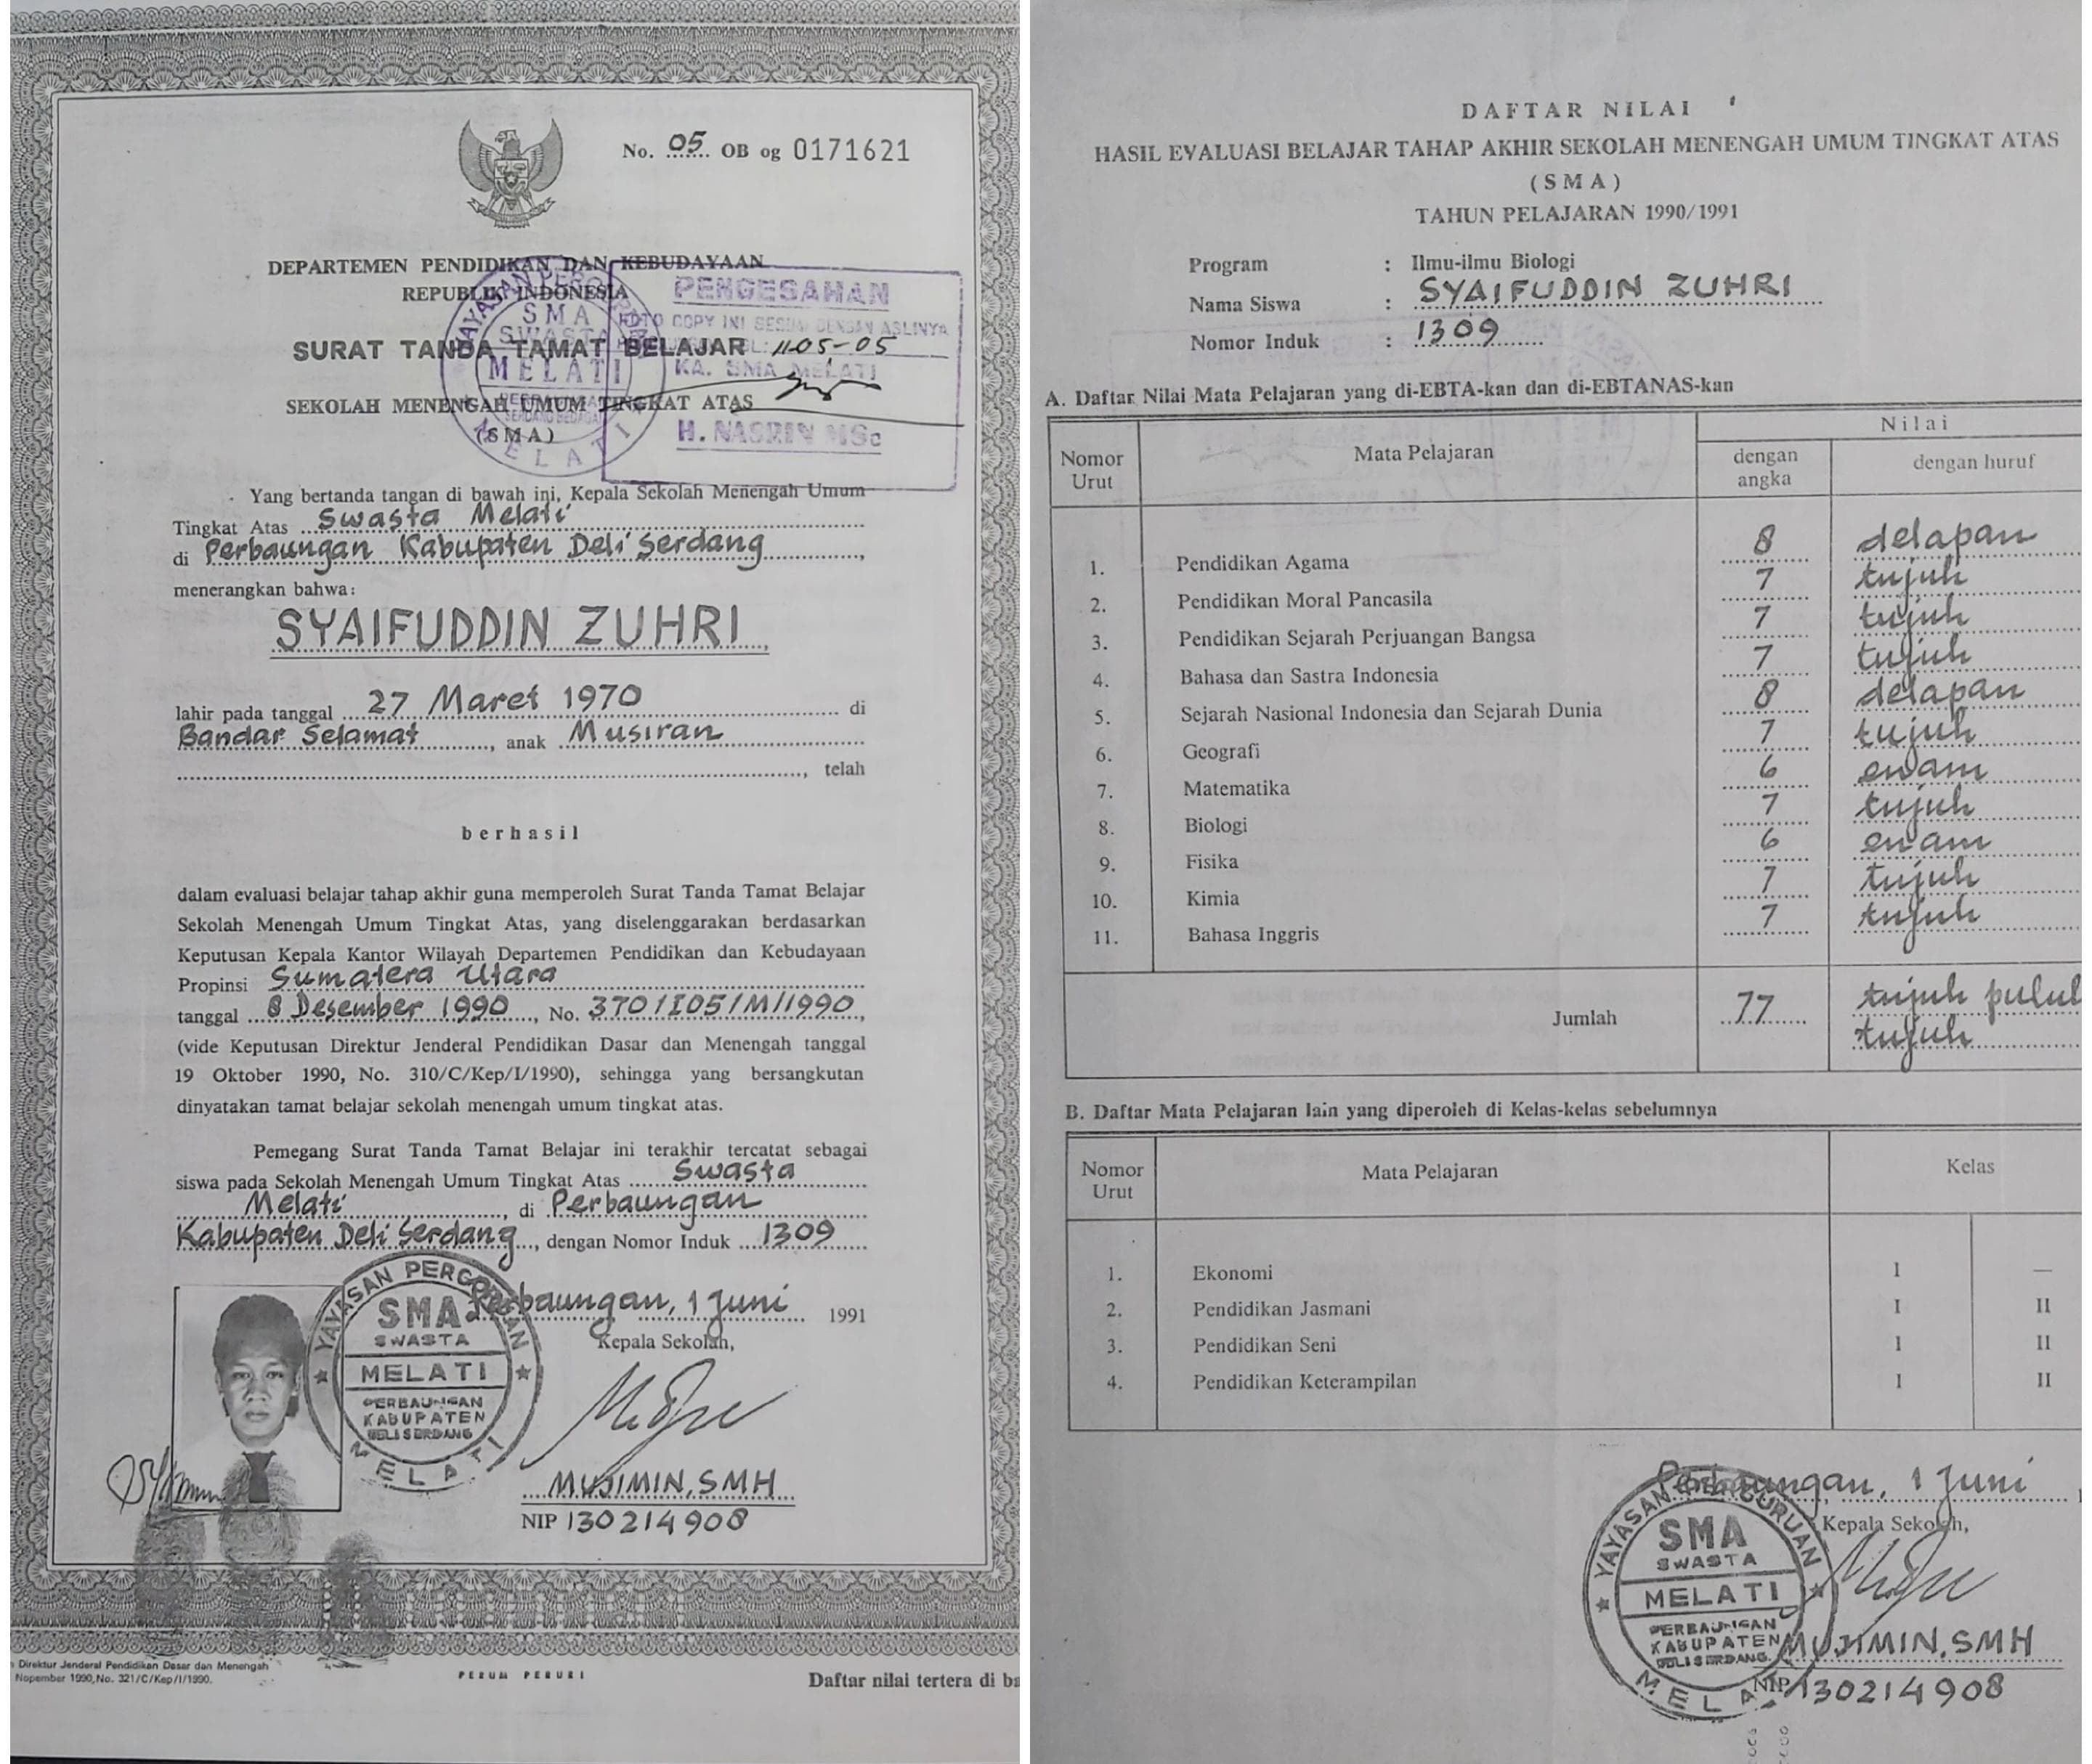 No. 05 OB og 0171621
DEPARTEMEN PENDIDIKAN DAN KEBUDAYAAN
REPUBLIK INDONESIA
SURAT TANDA TAMAT BELAJAR
SEKOLAH MENENGAH UMUM TINGKAT ATAS
(SMA)
YAYASAN
SMA
SWASTA
MELATI
SERDANG BEDAGAI
MELATI
PENGESAHAN
FOTO COPY INI SESUAI DENGAN ASLINYA
TGL: 11-05-05
KA. SMA MELATI
H. NASRIN MSc
Yang bertanda tangan di bawah ini, Kepala Sekolah Menengah Umum
Tingkat Atas Swasta Melati
di Perbaungan Kabupaten Deli Serdang,
menerangkan bahwa:
SYAIFUDDIN ZUHRI
lahir pada tanggal 27 Maret 1970 di
Bandar Selamat, anak Musiran
, telah
berhasil
dalam evaluasi belajar tahap akhir guna memperoleh Surat Tanda Tamat Belajar
Sekolah Menengah Umum Tingkat Atas, yang diselenggarakan berdasarkan
Keputusan Kepala Kantor Wilayah Departemen Pendidikan dan Kebudayaan
Propinsi Sumatera Utara
tanggal 8 Desember 1990, No. 370/I05/M/1990,
(vide Keputusan Direktur Jenderal Pendidikan Dasar dan Menengah tanggal
19 Oktober 1990, No. 310/C/Kep/I/1990), sehingga yang bersangkutan
dinyatakan tamat belajar sekolah menengah umum tingkat atas.
Pemegang Surat Tanda Tamat Belajar ini terakhir tercatat sebagai
siswa pada Sekolah Menengah Umum Tingkat Atas Swasta
Melati, di Perbaungan
Kabupaten Deli Serdang, dengan Nomor Induk 1309
Perbaungan, 1 Juni 1991
Kepala Sekolah,
YAYASAN PERGURUAN
SMA
SWASTA
MELATI
PERBAUNGAN
KABUPATEN
DELI SERDANG
MELATI
MUJIMIN, SMH
NIP 130214908
Direktur Jenderal Pendidikan Dasar dan Menengah
Nopember 1990, No. 321/C/Kep/I/1990.
PERUM PERURI
Daftar nilai tertera di ba
DAFTAR NILAI
HASIL EVALUASI BELAJAR TAHAP AKHIR SEKOLAH MENENGAH UMUM TINGKAT ATAS
(SMA)
TAHUN PELAJARAN 1990/1991
Program : Ilmu-ilmu Biologi
Nama Siswa : SYAIFUDDIN ZUHRI
Nomor Induk : 1309
A. Daftar Nilai Mata Pelajaran yang di-EBTA-kan dan di-EBTANAS-kan
Nomor Urut Mata Pelajaran Nilai
dengan angka dengan huruf
1. Pendidikan Agama 8 delapan
2. Pendidikan Moral Pancasila 7 tujuh
3. Pendidikan Sejarah Perjuangan Bangsa 7 tujuh
4. Bahasa dan Sastra Indonesia 7 tujuh
5. Sejarah Nasional Indonesia dan Sejarah Dunia 8 delapan
6. Geografi 7 tujuh
7. Matematika 6 enam
8. Biologi 7 tujuh
9. Fisika 6 enam
10. Kimia 7 tujuh
11. Bahasa Inggris 7 tujuh
Jumlah 77 tujuh puluh
tujuh
B. Daftar Mata Pelajaran lain yang diperoleh di Kelas-kelas sebelumnya
Nomor Urut Mata Pelajaran Kelas
1. Ekonomi I —
2. Pendidikan Jasmani I II
3. Pendidikan Seni I II
4. Pendidikan Keterampilan I II
Perbaungan, 1 Juni
Kepala Sekolah,
YAYASAN PERGURUAN
SMA
SWASTA
MELATI
PERBAUNGAN
KABUPATEN
DELI SERDANG
MELATI
MUJIMIN, SMH
NIP 130214908